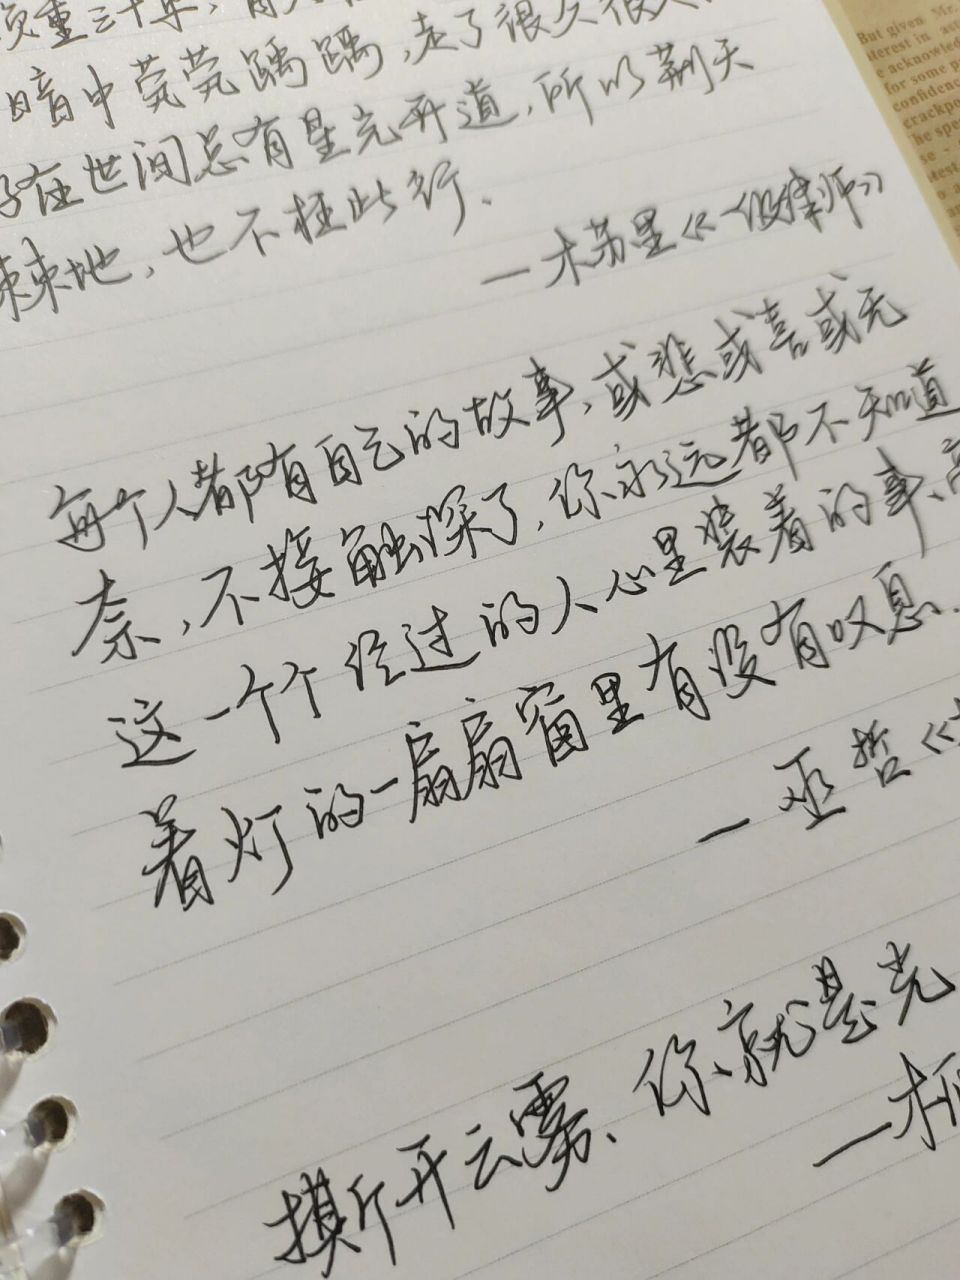 负重三十年，有人
暗中茕茕踽踽，走了很久很久
在世间总有星光开道，所以荆天
棘地，也不枉此行．
—木苏里《一级律师》
每个人都有自己的故事，或悲或喜或无
奈，不接触深了，你永远都不知道
这一个个经过的人心里装着的事、亮
着灯的一扇扇窗里有没有叹息．
—巫哲《
摸开云雾、你就是光
But given Me
terest in
e acknowled
for some p
confidenc
crackpo
he spe